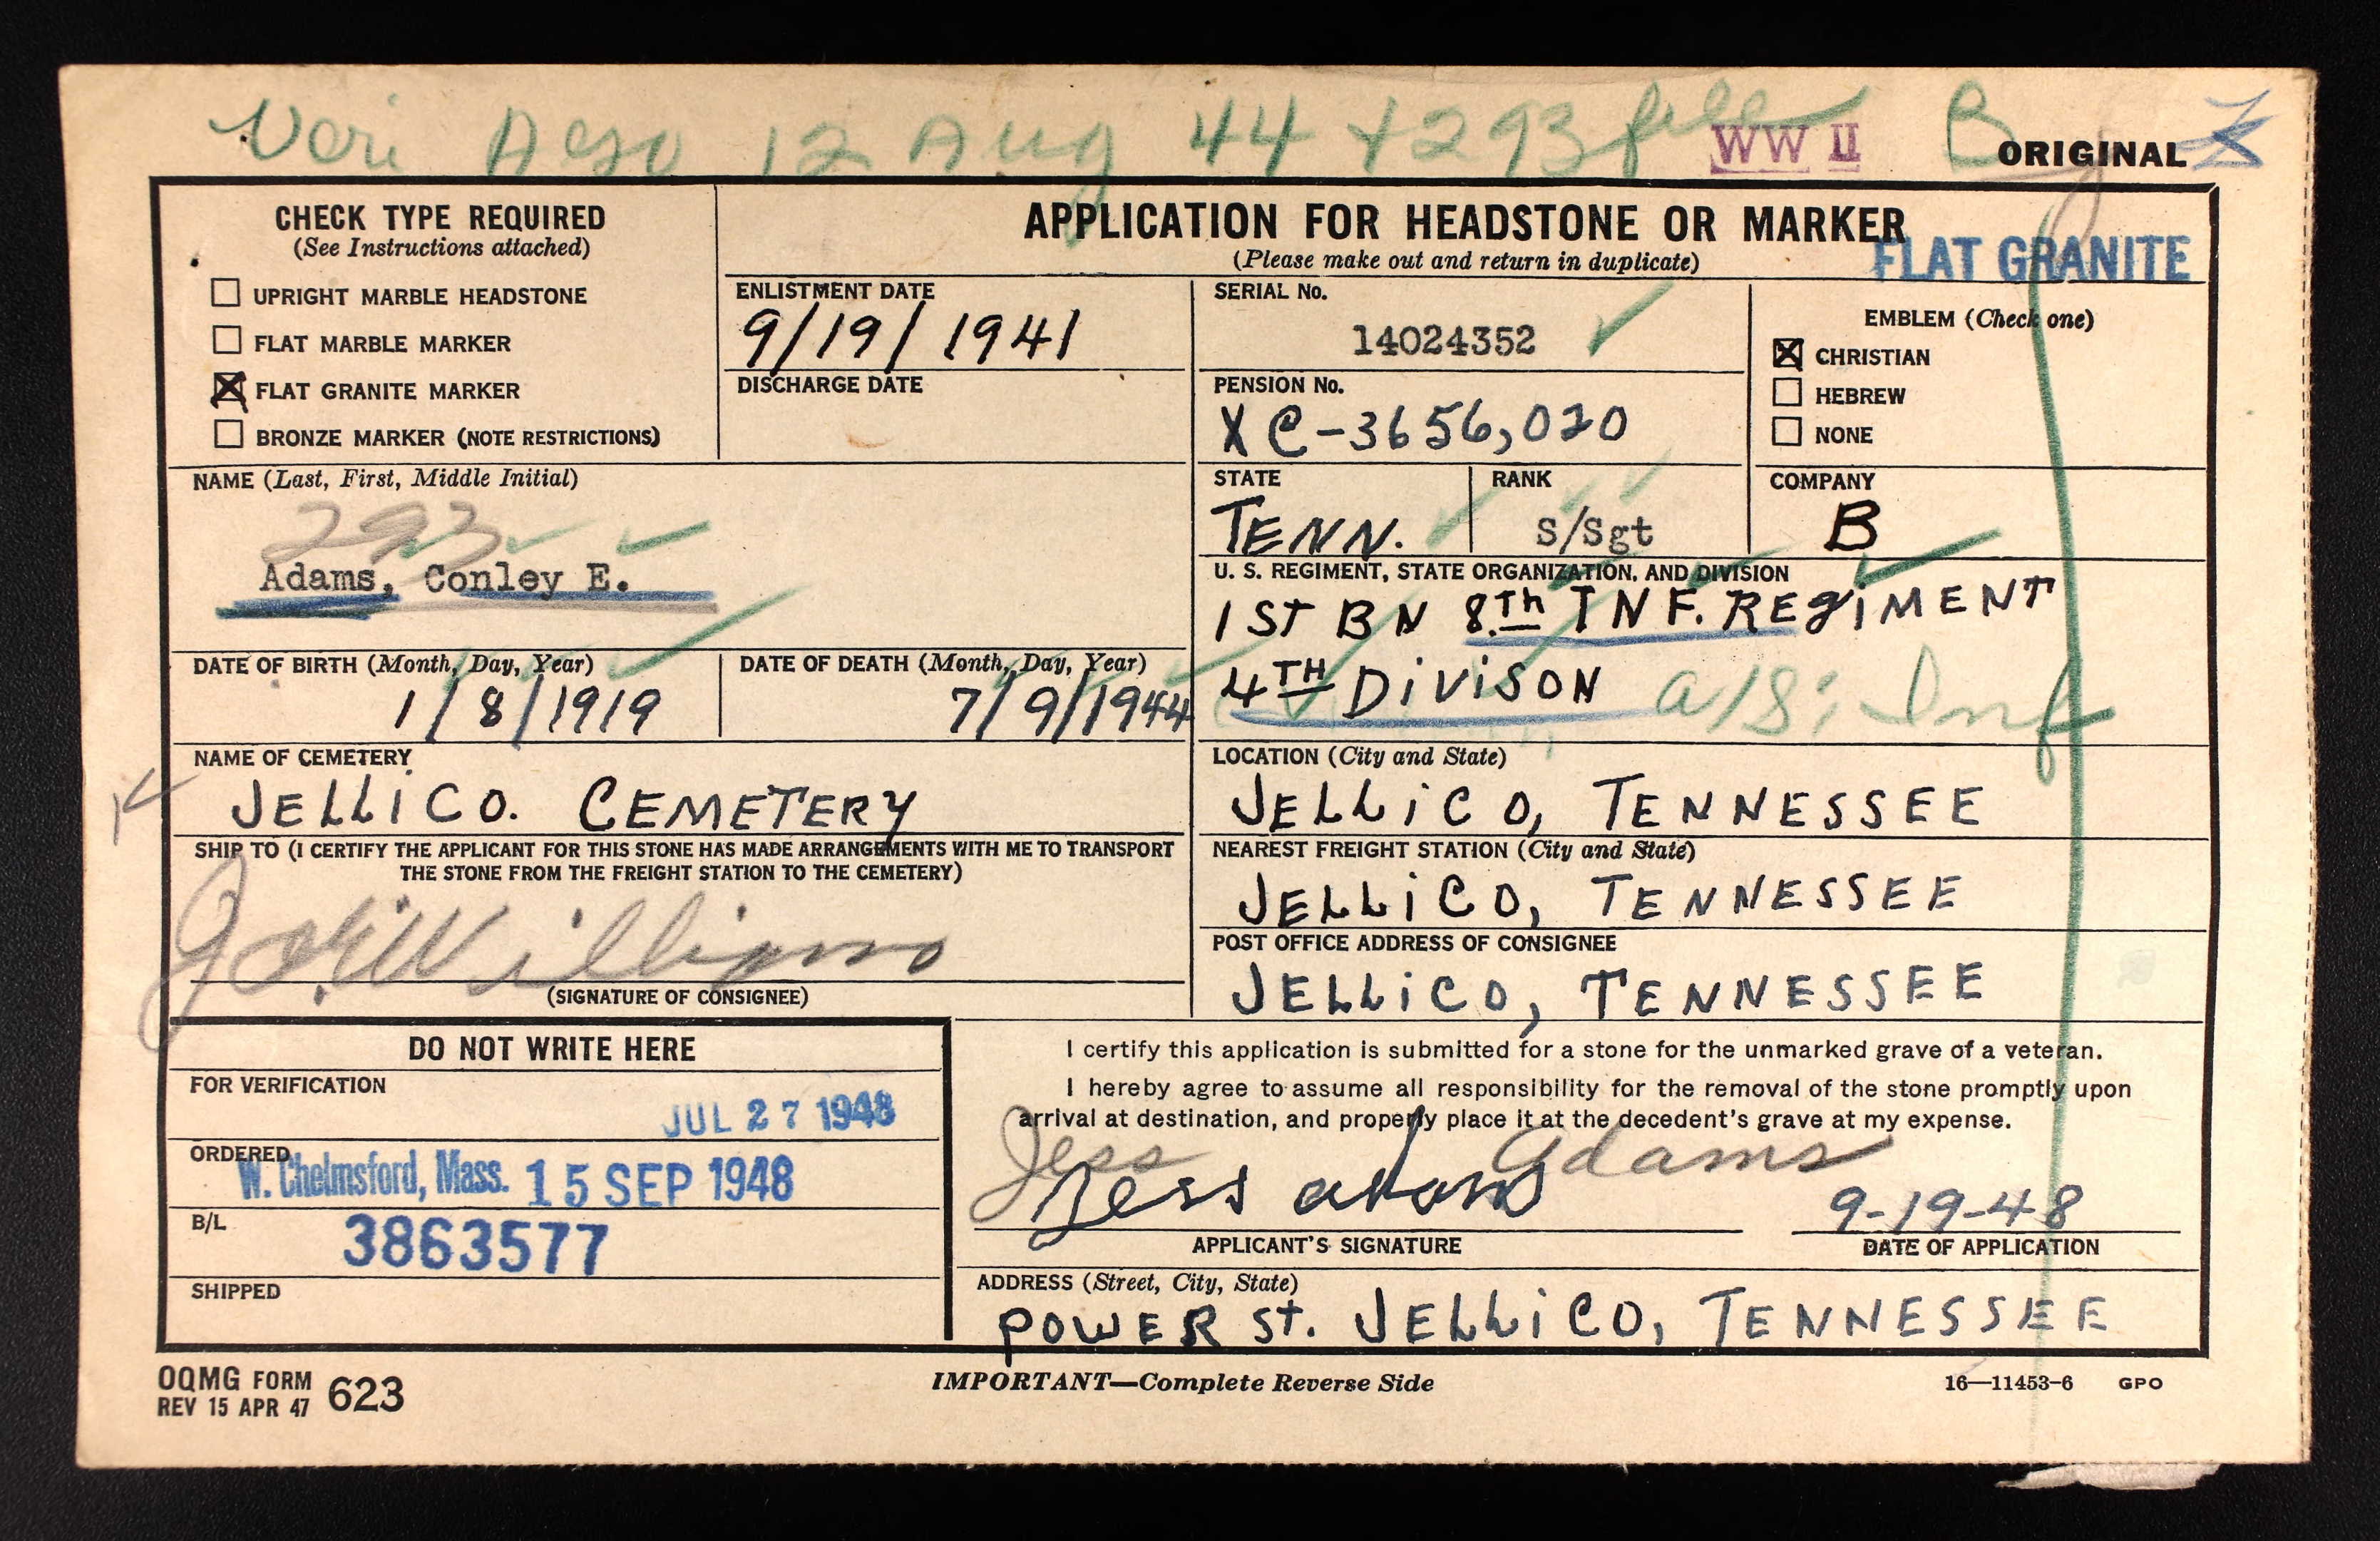 Veri Ago 12 Aug 44 + 293 file B
WW II
ORIGINAL
CHECK TYPE REQUIRED
(See Instructions attached)
UPRIGHT MARBLE HEADSTONE
FLAT MARBLE MARKER
FLAT GRANITE MARKER
BRONZE MARKER (NOTE RESTRICTIONS)
APPLICATION FOR HEADSTONE OR MARKER
(Please make out and return in duplicate)
FLAT GRANITE
ENLISTMENT DATE
9/19/1941
DISCHARGE DATE
SERIAL No.
14024352
PENSION No.
XC-3656,020
EMBLEM (Check one)
CHRISTIAN
HEBREW
NONE
NAME (Last, First, Middle Initial)
293
Adams, Conley E.
STATE
TENN.
RANK
S/Sgt
COMPANY
B
U. S. REGIMENT, STATE ORGANIZATION, AND DIVISION
1ST BN 8.Th INF. REgiMENT
4TH DiViSON a/8; Inf
DATE OF BIRTH (Month, Day, Year)
1/8/1919
DATE OF DEATH (Month, Day, Year)
7/9/1944
NAME OF CEMETERY
JELLiCO. CEMETERY
LOCATION (City and State)
JELLiCO, TENNESSEE
SHIP TO (I CERTIFY THE APPLICANT FOR THIS STONE HAS MADE ARRANGEMENTS WITH ME TO TRANSPORT
THE STONE FROM THE FREIGHT STATION TO THE CEMETERY)
Williams
(SIGNATURE OF CONSIGNEE)
NEAREST FREIGHT STATION (City and State)
JELLiCO, TENNESSEE
POST OFFICE ADDRESS OF CONSIGNEE
JELLiCO, TENNESSEE
DO NOT WRITE HERE
FOR VERIFICATION
JUL 27 1948
ORDERED
W. Chelmsford, Mass. 15 SEP 1948
B/L
3863577
SHIPPED
I certify this application is submitted for a stone for the unmarked grave of a veteran.
I hereby agree to assume all responsibility for the removal of the stone promptly upon
arrival at destination, and properly place it at the decedent's grave at my expense.
Jess Adams
Jess adams
9-19-48
APPLICANT'S SIGNATURE
DATE OF APPLICATION
ADDRESS (Street, City, State)
POWER St. JELLiCO, TENNESSEE
OQMG FORM 623
REV 15 APR 47
IMPORTANT—Complete Reverse Side
16—11453-6 GPO